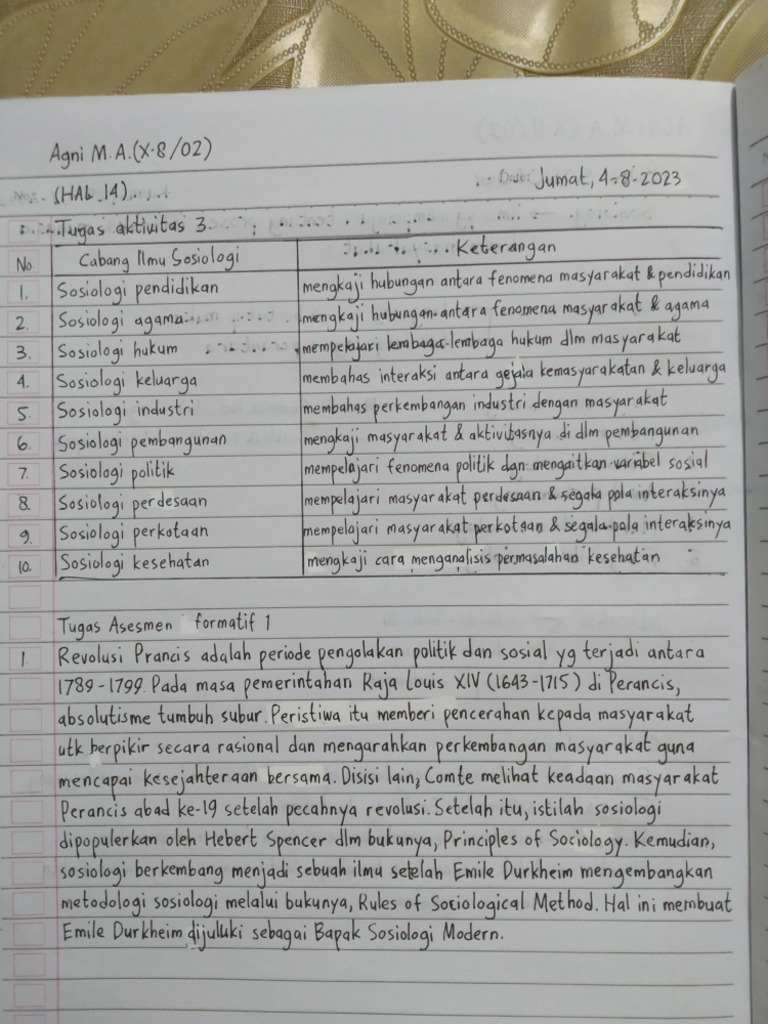 Agni M.A.(X-8/02)
(HAL 14)
Date: Jumat, 4-8-2023
Tugas aktivitas 3
No Cabang Ilmu Sosiologi Keterangan
1. Sosiologi pendidikan mengkaji hubungan antara fenomena masyarakat & pendidikan
2. Sosiologi agama mengkaji hubungan antara fenomena masyarakat & agama
3. Sosiologi hukum mempelajari lembaga-lembaga hukum dlm masyarakat
4. Sosiologi keluarga membahas interaksi antara gejala kemasyarakatan & keluarga
5. Sosiologi industri membahas perkembangan industri dengan masyarakat
6. Sosiologi pembangunan mengkaji masyarakat & aktivitasnya di dlm pembangunan
7. Sosiologi politik mempelajari fenomena politik dgn mengaitkan variabel sosial
8. Sosiologi perdesaan mempelajari masyarakat perdesaan & segala pola interaksinya
9. Sosiologi perkotaan mempelajari masyarakat perkotaan & segala pola interaksinya
10. Sosiologi kesehatan mengkaji cara menganalisis permasalahan kesehatan
Tugas Asesmen formatif 1
1. Revolusi Prancis adalah periode pengolakan politik dan sosial yg terjadi antara
1789-1799. Pada masa pemerintahan Raja Louis XIV (1643-1715) di Perancis,
absolutisme tumbuh subur. Peristiwa itu memberi pencerahan kepada masyarakat
utk berpikir secara rasional dan mengarahkan perkembangan masyarakat guna
mencapai kesejahteraan bersama. Disisi lain, Comte melihat keadaan masyarakat
Perancis abad ke-19 setelah pecahnya revolusi. Setelah itu, istilah sosiologi
dipopulerkan oleh Hebert Spencer dlm bukunya, Principles of Sociology. Kemudian,
sosiologi berkembang menjadi sebuah ilmu setelah Emile Durkheim mengembangkan
metodologi sosiologi melalui bukunya, Rules of Sociological Method. Hal ini membuat
Emile Durkheim dijuluki sebagai Bapak Sosiologi Modern.